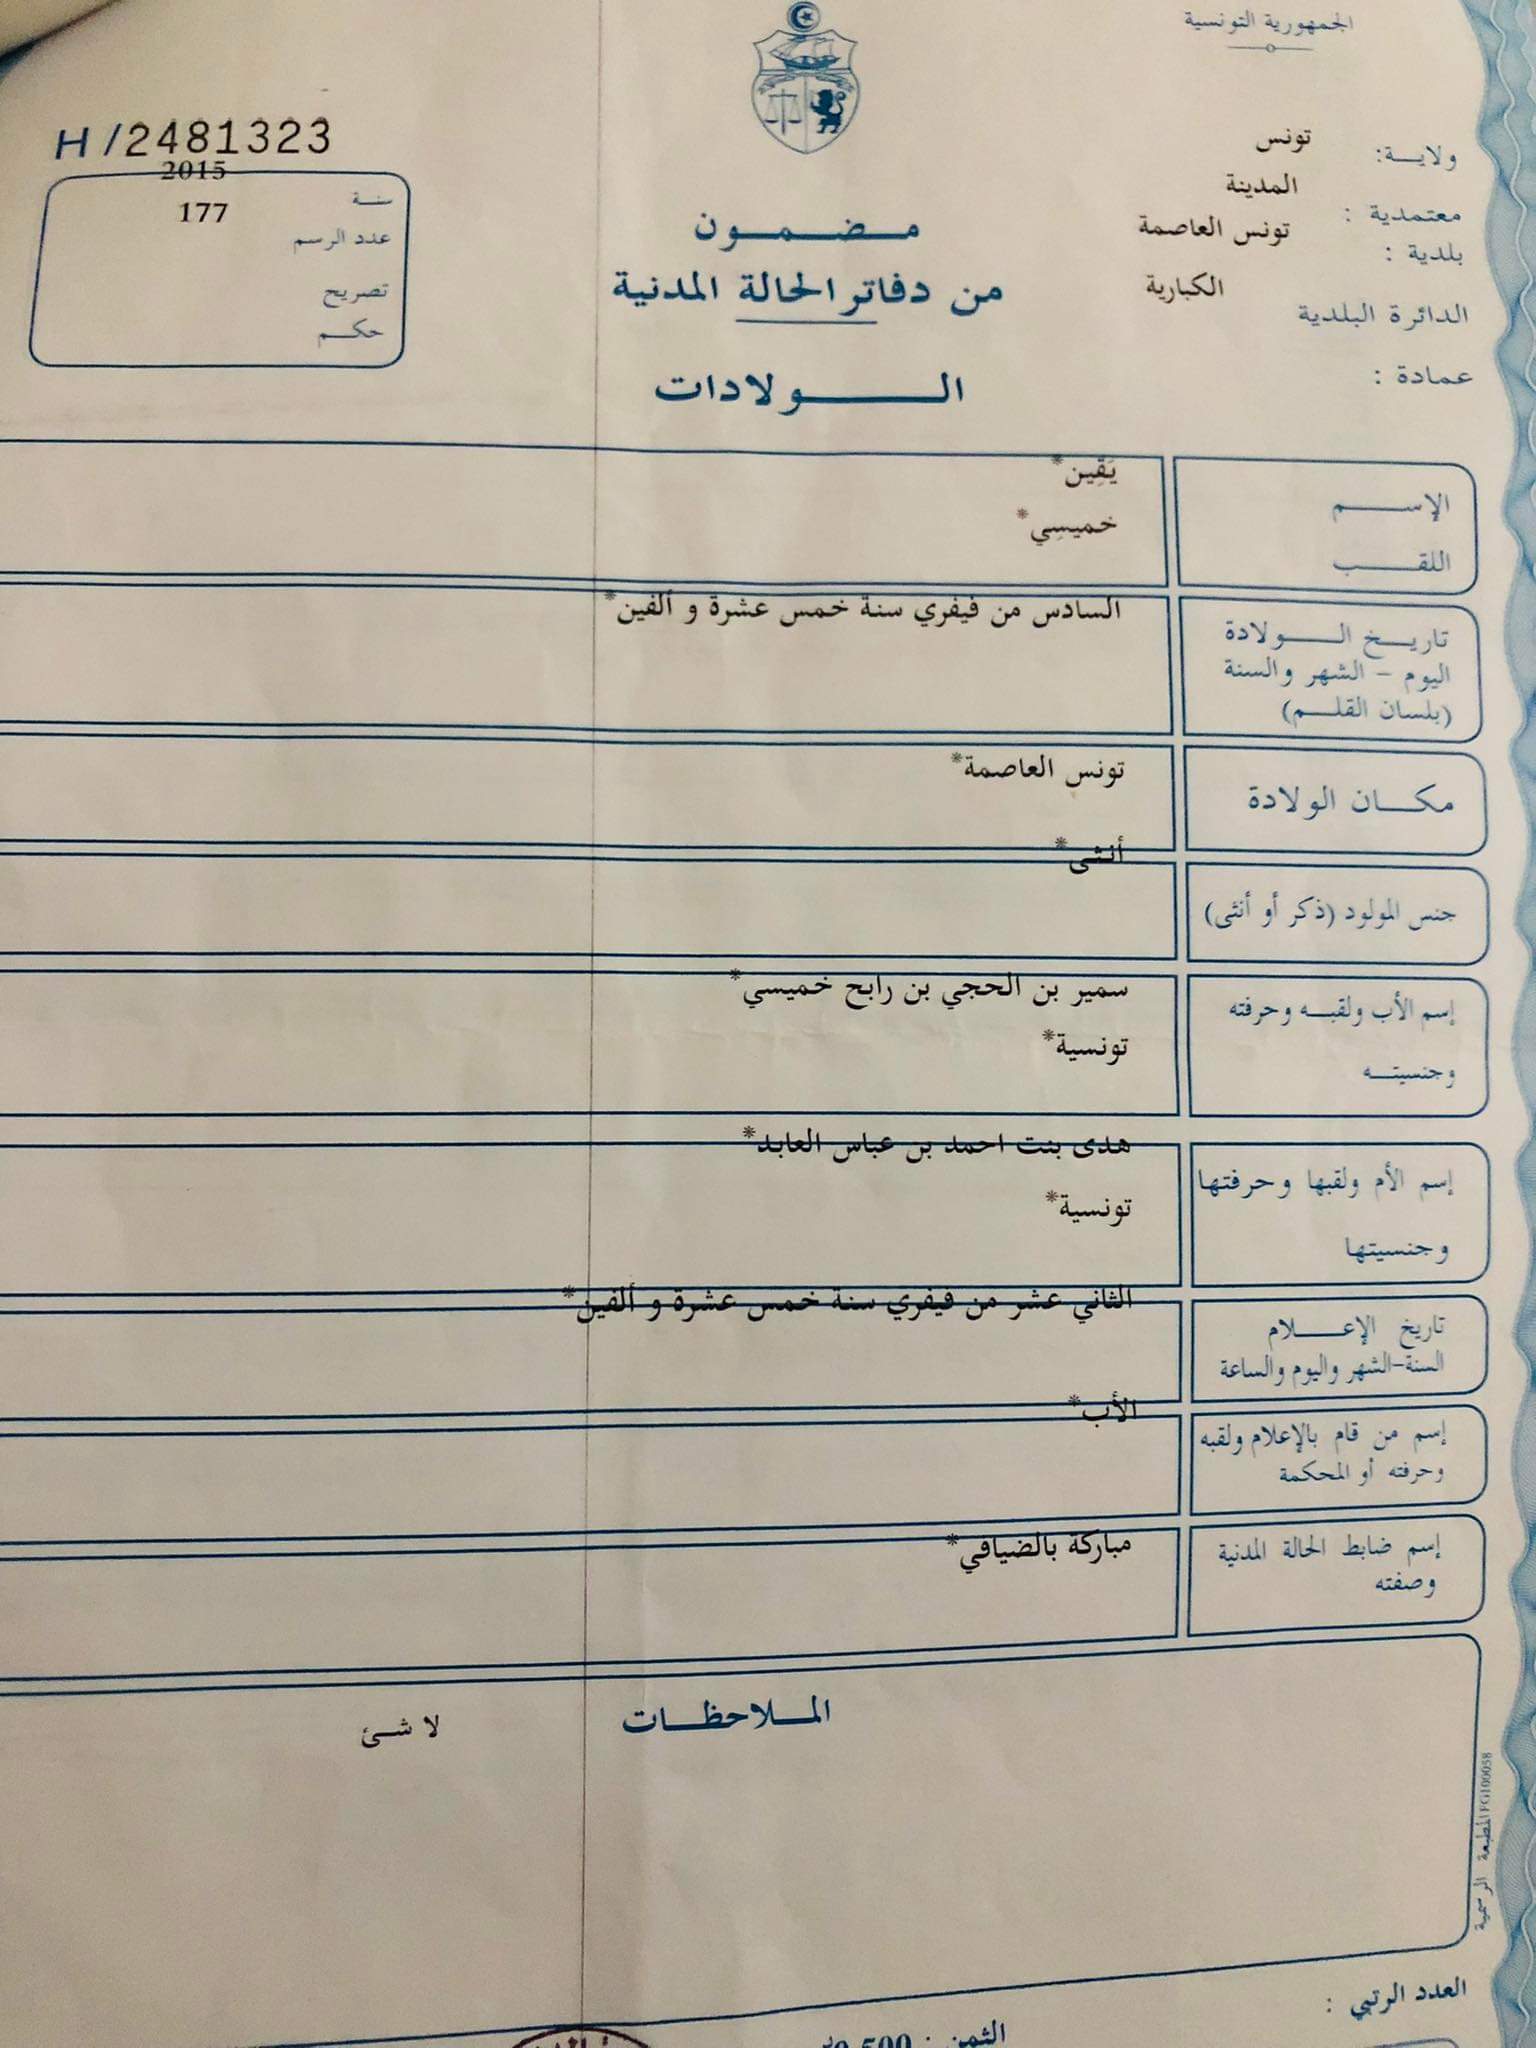 الجمهورية التونسية
ولاية: تونس
معتمدية : المدينة
بلدية : تونس العاصمة
الدائرة البلدية الكبارية
عمادة :
مضمون
من دفاتر الحالة المدنية
الولادات
H/2481323
سنة 2015
عدد الرسم 177
تصريح
حكم
الإسم يَقِين*
اللقب خميسِي*
تاريخ الولادة السادس من فيفري سنة خمس عشرة و ألفين*
اليوم - الشهر والسنة
(بلسان القلم)
مكان الولادة تونس العاصمة*
جنس المولود (ذكر أو أنثى) أنثى*
إسم الأب ولقبه وحرفته سمير بن الحجي بن رابح خميسي*
وجنسيته تونسية*
إسم الأم ولقبها وحرفتها هدى بنت احمد بن عباس العابد*
وجنسيتها تونسية*
تاريخ الإعلام الثاني عشر من فيفري سنة خمس عشرة و ألفين*
السنة-الشهر واليوم والساعة
إسم من قام بالإعلام ولقبه الأب*
وحرفته أو المحكمة
إسم ضابط الحالة المدنية مباركة بالضيافي*
وصفته
الملاحظات
لا شئ
المطبعة الرسمية FG100058
العدد الرتبي :
الثمن : 0,500